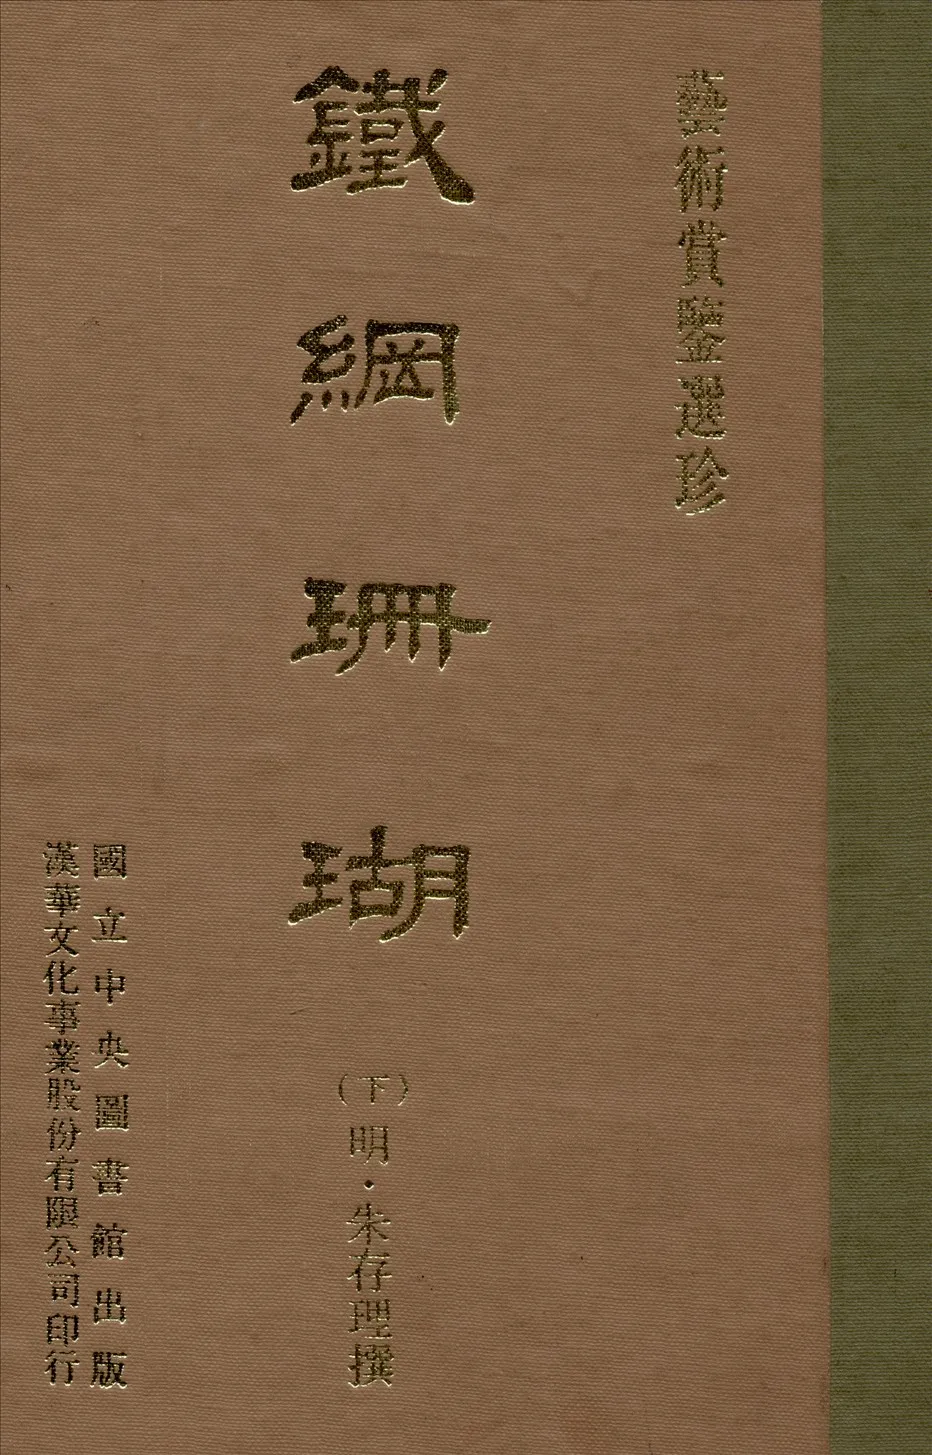 藝術賞鑒選珍
鐵網珊瑚
（下）明·朱存理撰
國立中央圖書館出版
漢華文化事業股份有限公司印行